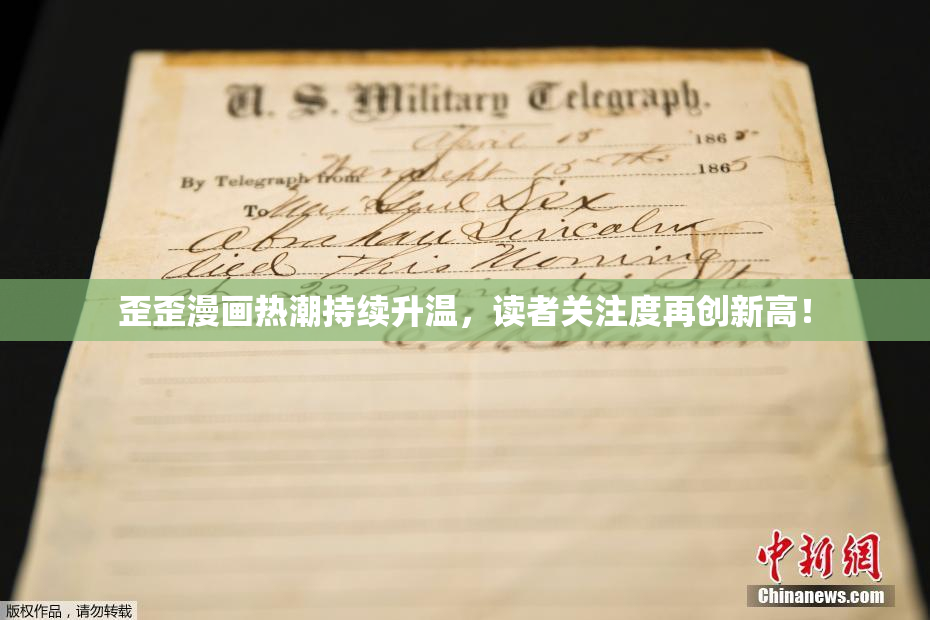 U. S. Military Telegraph.
April 15 1865.
By Telegraph from War Dept 15th 1865
To Maj Genl Dix
Abraham Lincoln
died This Morning
at 22 minutes after
歪歪漫画热潮持续升温，读者关注度再创新高！
E. M. Stanton
中新网
Chinanews.com
版权作品，请勿转载